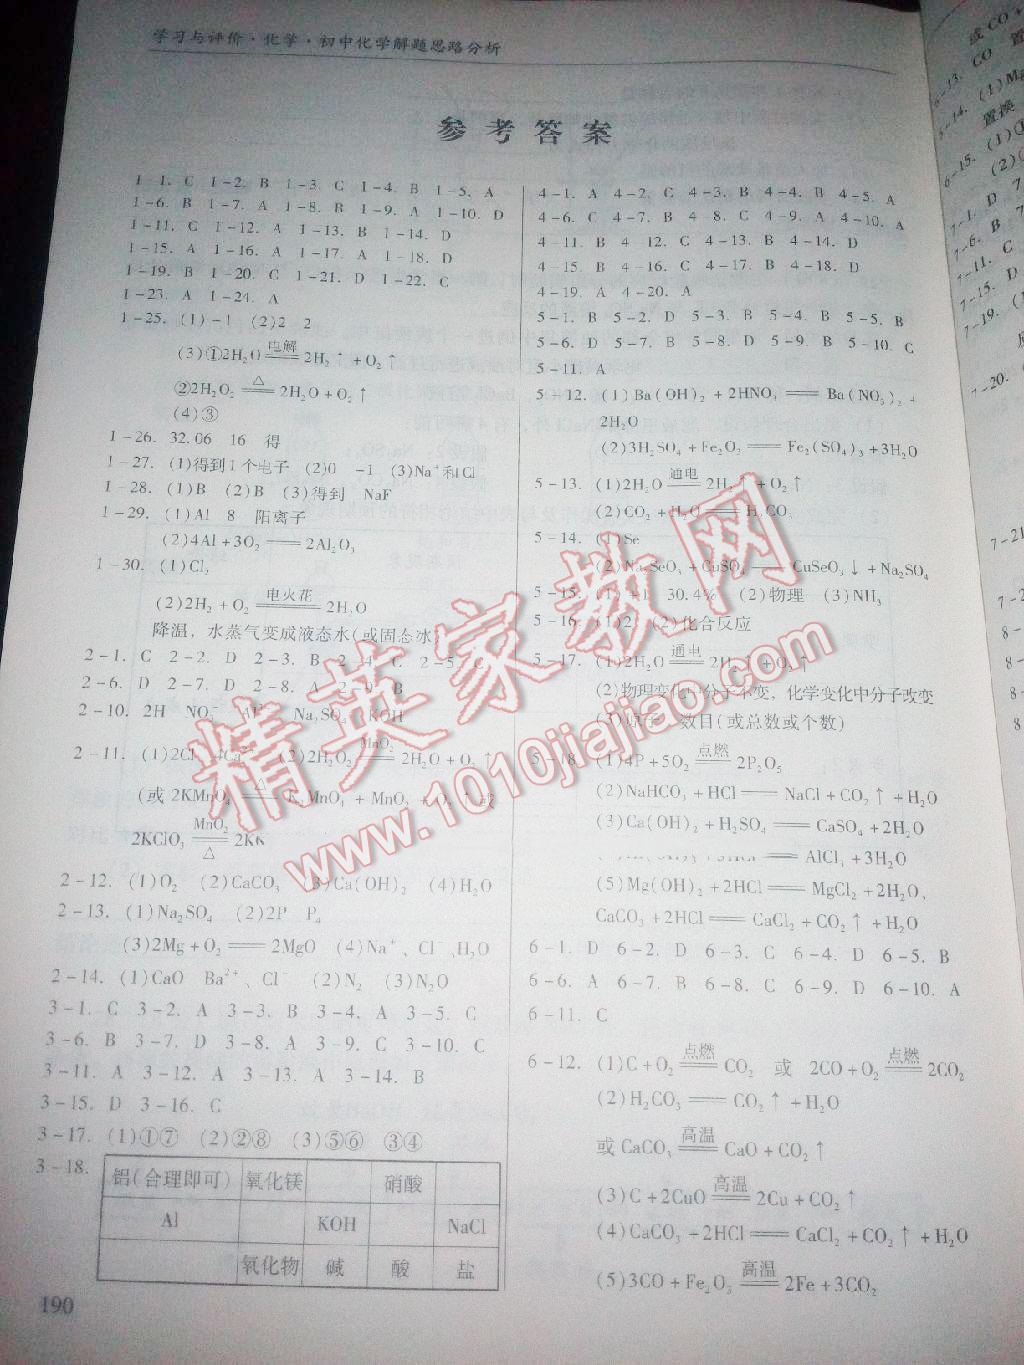 学习与评价·化学·初中化学解题思路分析
参考答案
1-1. C 1-2. B 1-3. C 1-4. B 1-5. A
1-6. B 1-7. A 1-8. B 1-9. A 1-10. D
1-11. C 1-12. A 1-13. B 1-14. D
1-15. A 1-16. A 1-17. A 1-18. D
1-19. B 1-20. C 1-21. D 1-22. C
1-23. A 1-24. A
1-25. (1)-1 (2)2 2
(3)①2H₂O 电解 2H₂↑+O₂↑
②2H₂O₂ △ 2H₂O+O₂↑
(4)③
1-26. 32.06 16 得
1-27. (1)得到1个电子 (2)0 -1 (3)Na⁺和Cl
1-28. (1)B (2)B (3)得到 NaF
1-29. (1)Al 8 阳离子
(2)4Al+3O₂══2Al₂O₃
1-30. (1)Cl₂
(2)2H₂+O₂ 电火花 2H₂O
降温,水蒸气变成液态水(或固态冰)
2-1. C 2-2. D 2-3. B 2-4. C 2-5. C
2-6. D 2-7. D 2-8. A 2-9. B
2-10. 2H NO₃⁻ Na₂SO₄ KOH
2-11. (1)2Cl 4Ca²⁺ (2)2H₂O₂ MnO₂ 2H₂O+O₂↑
(或 2KMnO₄ △ K₂MnO₄+MnO₂+O₂↑或
2KClO₃ MnO₂ △ 2K
2-12. (1)O₂ (2)CaCO₃ (3)Ca(OH)₂ (4)H₂O
2-13. (1)Na₂SO₄ (2)2P P₄
(3)2Mg+O₂══2MgO (4)Na⁺、Cl⁻、H₂O
2-14. (1)CaO Ba²⁺、Cl⁻ (2)N₂ (3)N₂O
3-1. C 3-2. A 3-3. B 3-4. A 3-5. C
3-6. B 3-7. D 3-8. A 3-9. C 3-10. C
3-11. A 3-12. A 3-13. A 3-14. B
3-15. D 3-16. C
3-17. (1)①⑦ (2)②⑧ (3)⑤⑥ ③④
3-18.
铝(合理即可) 氧化镁 硝酸
Al KOH NaCl
氧化物 碱 酸 盐
190
4-1. A 4-2. C 4-3. B 4-4. B 4-5. A
4-6. C 4-7. B 4-8. C 4-9. A 4-10. A
4-11. B 4-12. C 4-13. B 4-14. D
4-15. B 4-16. C 4-17. B 4-18. D
4-19. A 4-20. A
5-1. B 5-2. D 5-3. B 5-4. B 5-5. B
5-6. D 5-7. B 5-8. D 5-9. B 5-10. C
5-11. A
5-12. (1)Ba(OH)₂+2HNO₃══Ba(NO₃)₂+
2H₂O
(2)3H₂SO₄+Fe₂O₃══Fe₂(SO₄)₃+3H₂O
5-13. (1)2H₂O 通电 2H₂↑+O₂↑
(2)CO₂+H₂O══H₂CO₃
5-14. (1)Se
(2)Na₂SeO₃+CuSO₄══CuSeO₃↓+Na₂SO₄
5-15. (1)+1 30.4% (2)物理 (3)NH₃
5-16. (1)2 (2)化合反应
5-17. (1)2H₂O 通电 2H₂↑+O₂↑
(2)物理变化中分子不变,化学变化中分子改变
(3)原子 数目(或总数或个数)
5-18. (1)4P+5O₂ 点燃 2P₂O₅
(2)NaHCO₃+HCl══NaCl+CO₂↑+H₂O
(3)Ca(OH)₂+H₂SO₄══CaSO₄+2H₂O
AlCl₃+3H₂O
(5)Mg(OH)₂+2HCl══MgCl₂+2H₂O,
CaCO₃+2HCl══CaCl₂+CO₂↑+H₂O
6-1. D 6-2. D 6-3. C 6-4. D 6-5. B
6-6. A 6-7. B 6-8. C 6-9. D 6-10. A
6-11. C
6-12. (1)C+O₂ 点燃 CO₂ 或 2CO+O₂ 点燃 2CO₂
(2)H₂CO₃══CO₂↑+H₂O
或CaCO₃ 高温 CaO+CO₂↑
(3)C+2CuO 高温 2Cu+CO₂↑
(4)CaCO₃+2HCl══CaCl₂+CO₂↑+H₂O
(5)3CO+Fe₂O₃ 高温 2Fe+3CO₂
或CO+
6-13. CO 置
6-14. (1)Mg
置换
6-15. (1)①
(2)
7-1. D 7
7-6. B 7
7-11. C
7-15. D
7-19. (1
7-20.
7-21
精英家教网
www.1010jiajiao.com